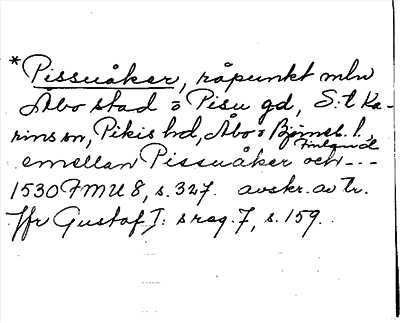 *Pissuåker, råpunkt mln
Åbo stad o Pisu gd, S:t Ka-
rins sn, Pikis hd, Åbo o Björneb. l.,
Finland
emellan Pissuåker och ---
1530 FMU 8, s. 327. avskr. av tr.
Jfr Gustaf I: s reg. 7, s. 159.